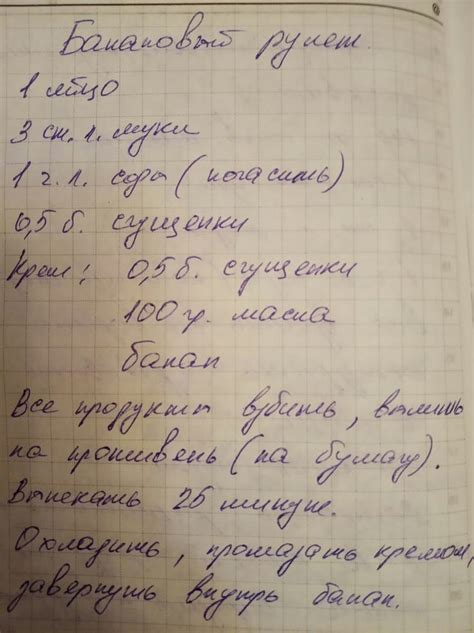 Банановый рулет.
1 яйцо
3 ст. л. муки
1 ч. л. соды (погасить)
0,5 б. сгущенки
Крем: 0,5 б. сгущенки
100 гр. масла
банан
Все продукты взбить, вылить
на противень (на бумагу).
Выпекать 25 минут.
Охладить, промазать кремом,
завернуть внутрь банан.